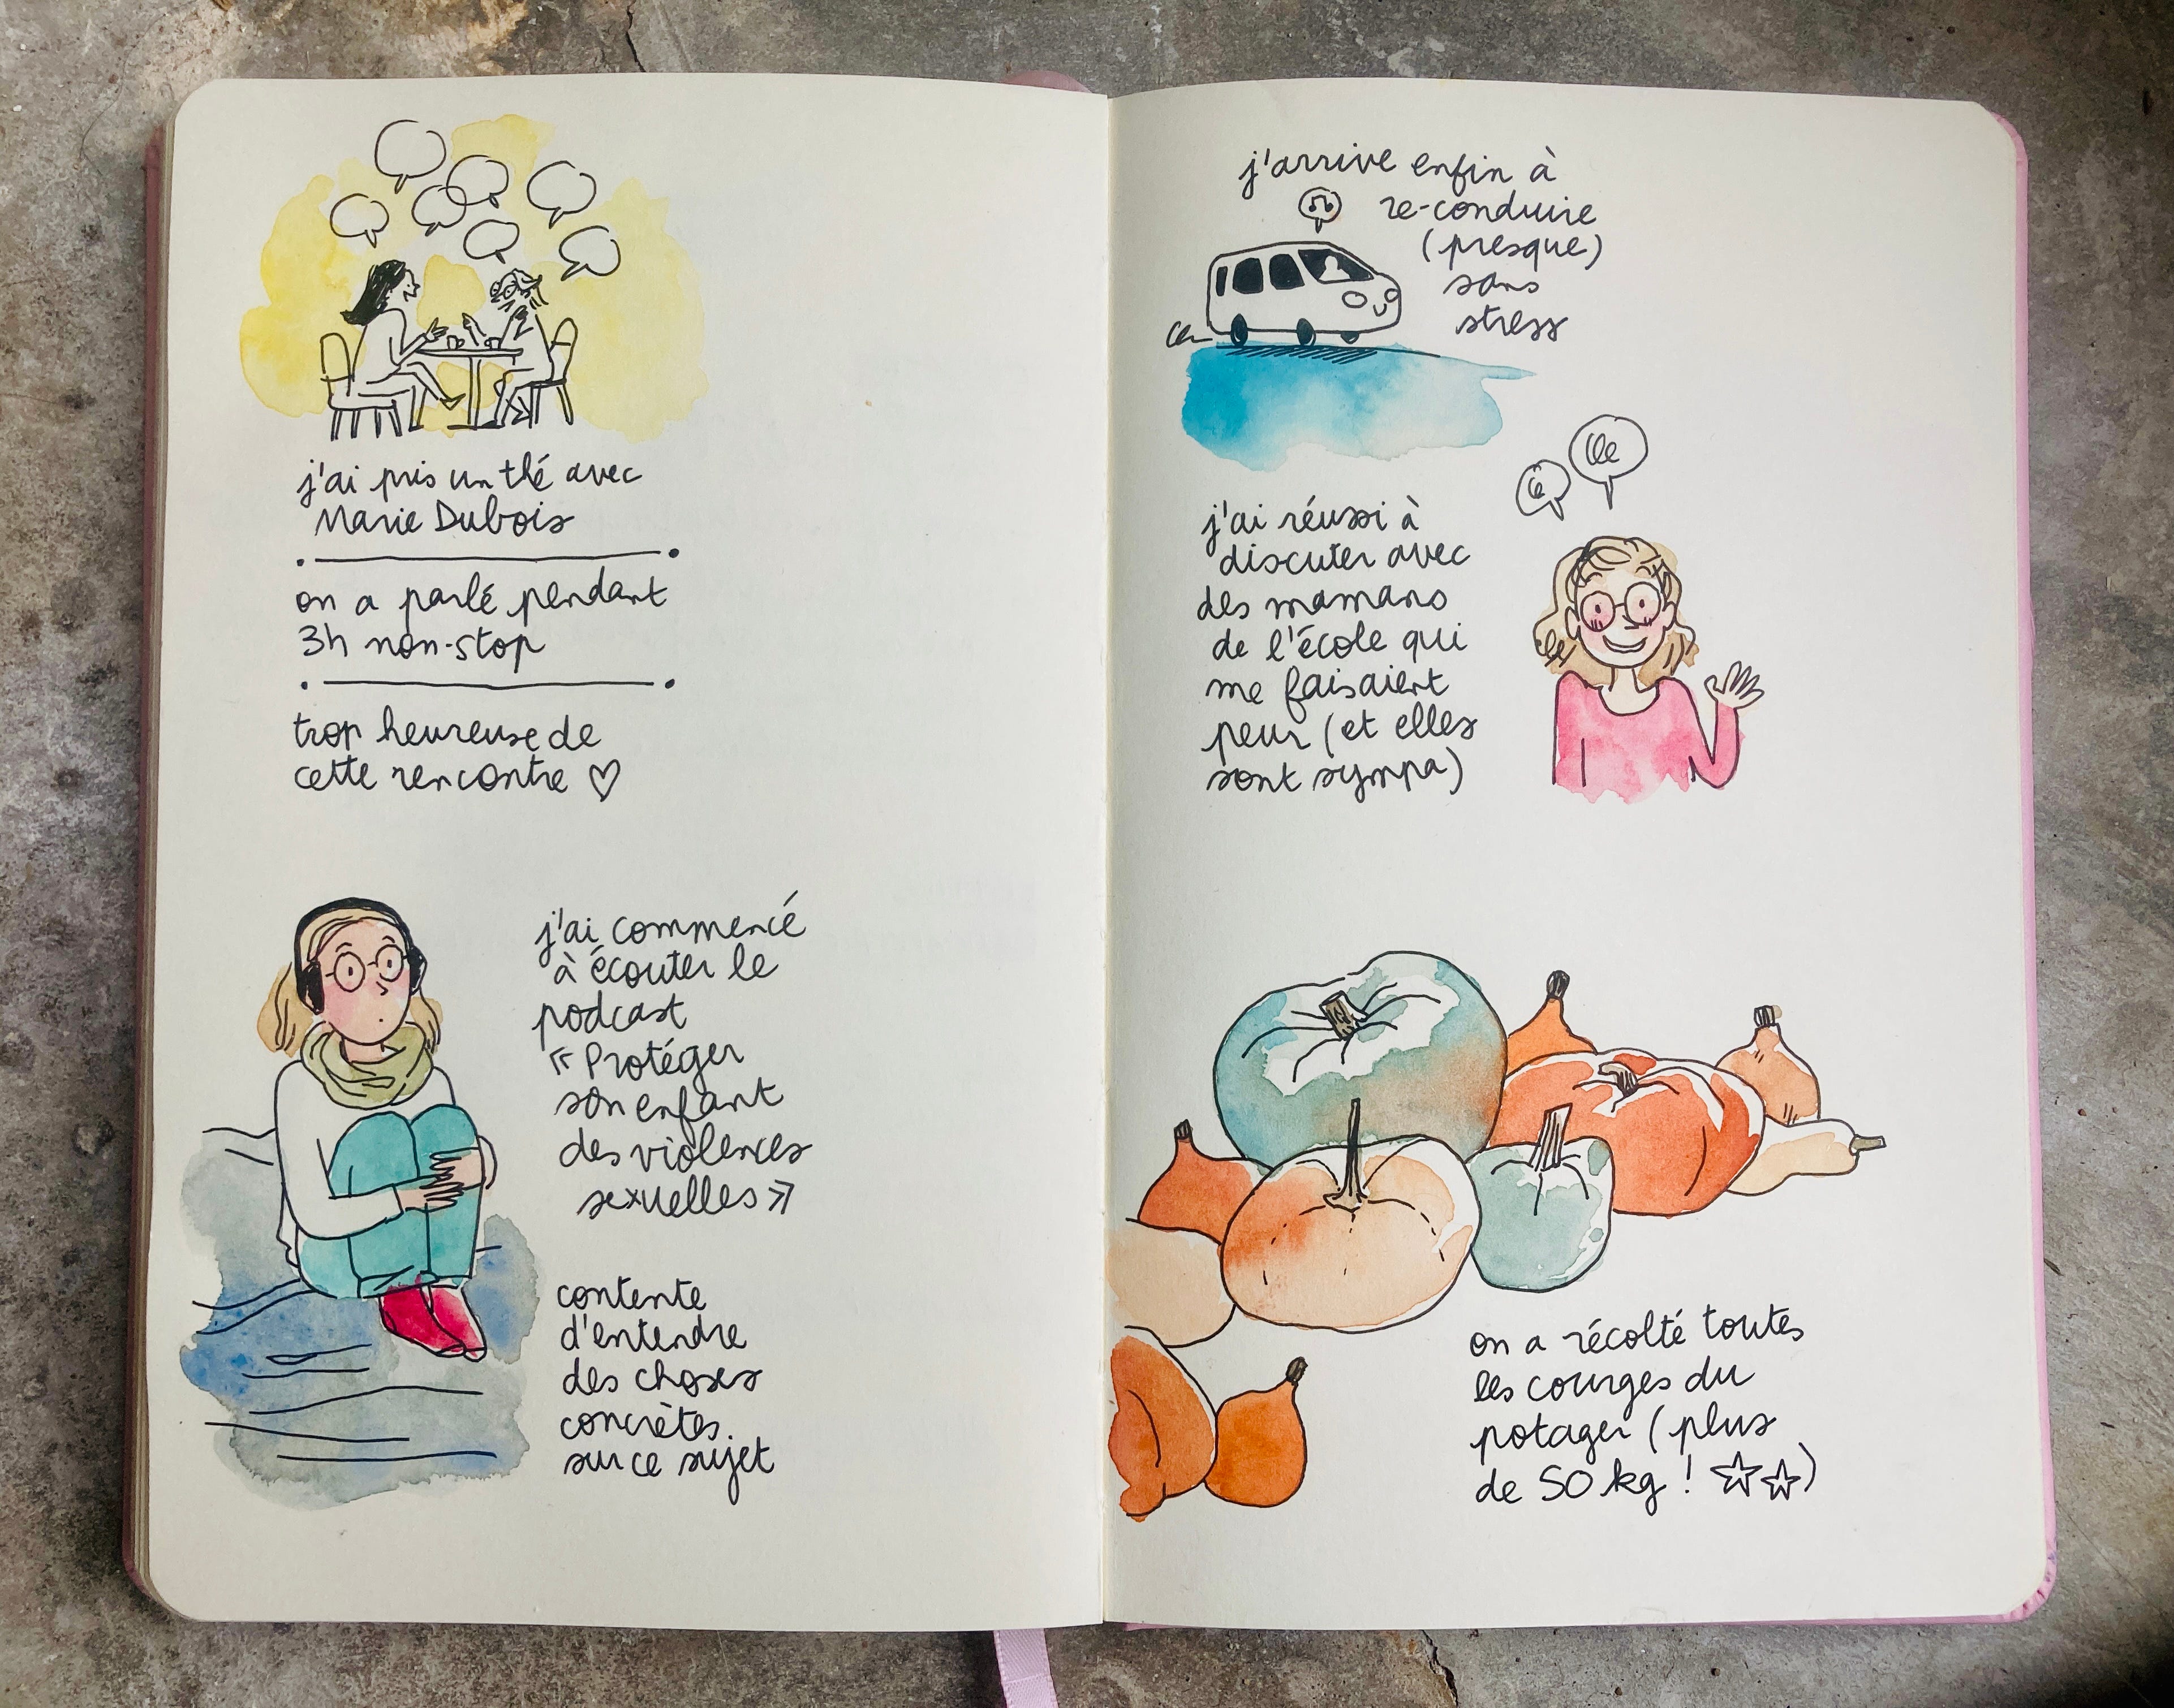 j'ai pris un thé avec
Marie Dubois
on a parlé pendant
3h non-stop
trop heureuse de
cette rencontre ♡
j'ai commencé
à écouter le
podcast
« Protéger
son enfant
des violences
sexuelles »
contente
d'entendre
des choses
concrètes
sur ce sujet
j'arrive enfin à
re-conduire
(presque)
sans
stress
j'ai réussi à
discuter avec
des mamans
de l'école qui
me faisaient
peur (et elles
sont sympa)
on a récolté toutes
les courges du
potager (plus
de 50 kg ! ☆☆)